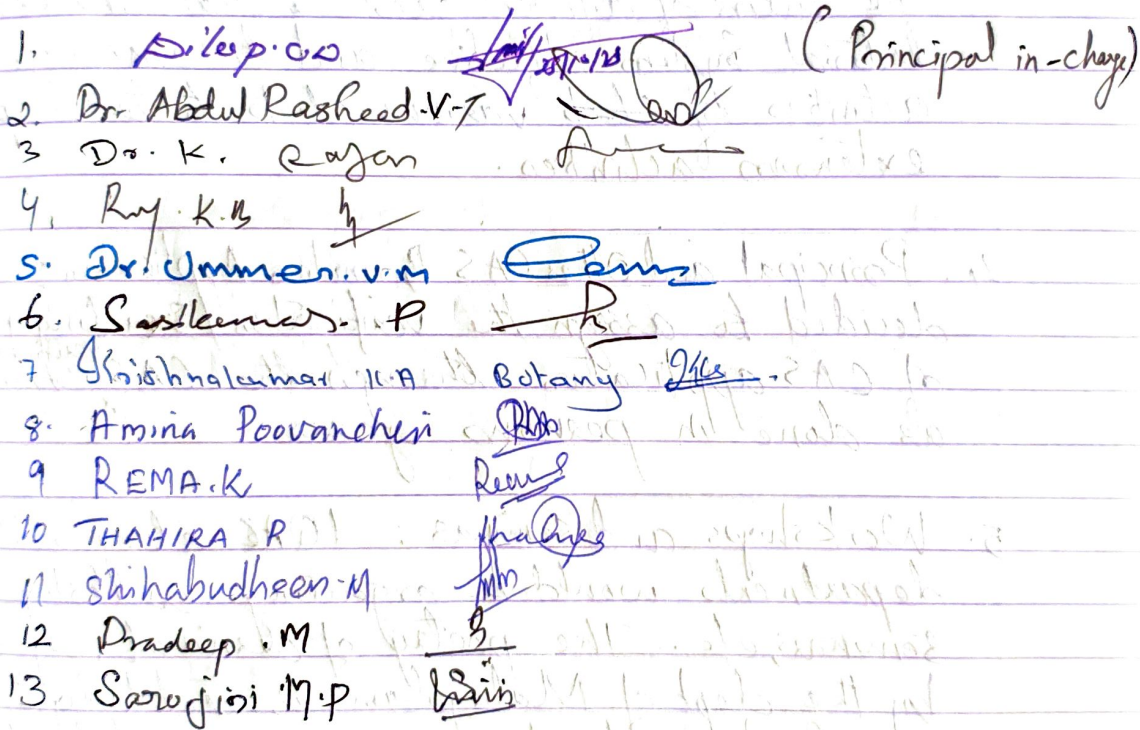 1. Dileep. (Principal in-charge)
2. Dr. Abdul Rasheed. V-T
3 Dr. K. Rajan
4. Roy. K.B
5. Dr. Ummer. V.M
6. Sasikumar. P
7 Krishnakumar K.A Botany
8. Amina Poovancheri
9 REMA.K Rema
10 THAHIRA R
11 Shihabudheen.M
12 Pradeep.M
13 Sarojini M.P